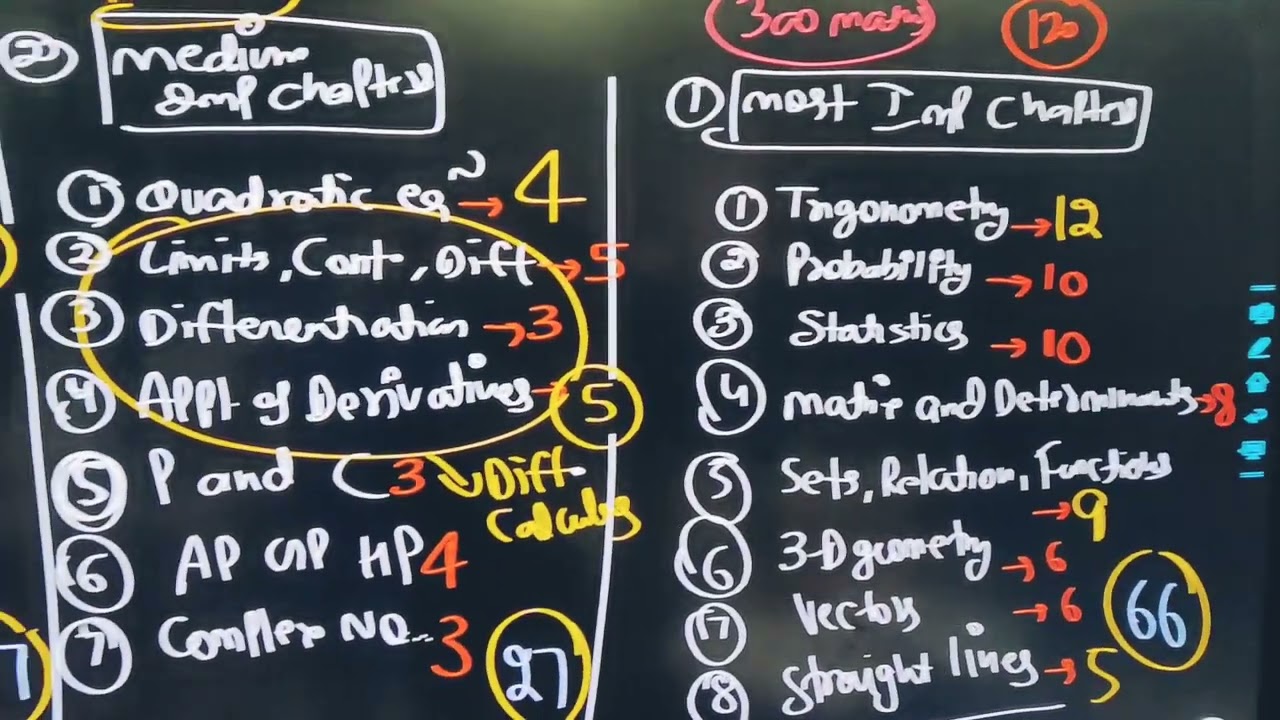 ② medium
Imp Chapters
① Quadratic eqⁿ → 4
② Limits, Cont, Diff → 5
③ Differentiation → 3
④ Appl of Derivatives → 5
⑤ P and C 3
Diff
Calculus
⑥ AP GP HP 4
⑦ Complex NO... 3
27
300 marks
120
① most Imp Chapters
① Trigonometry → 12
② Probability → 10
③ Statistics → 10
④ matrix and Determinants → 8
⑤ Sets, Relation, Functions
→ 9
⑥ 3-D geometry → 6
⑦ Vectors → 6
66
⑧ Straight lines → 5
7